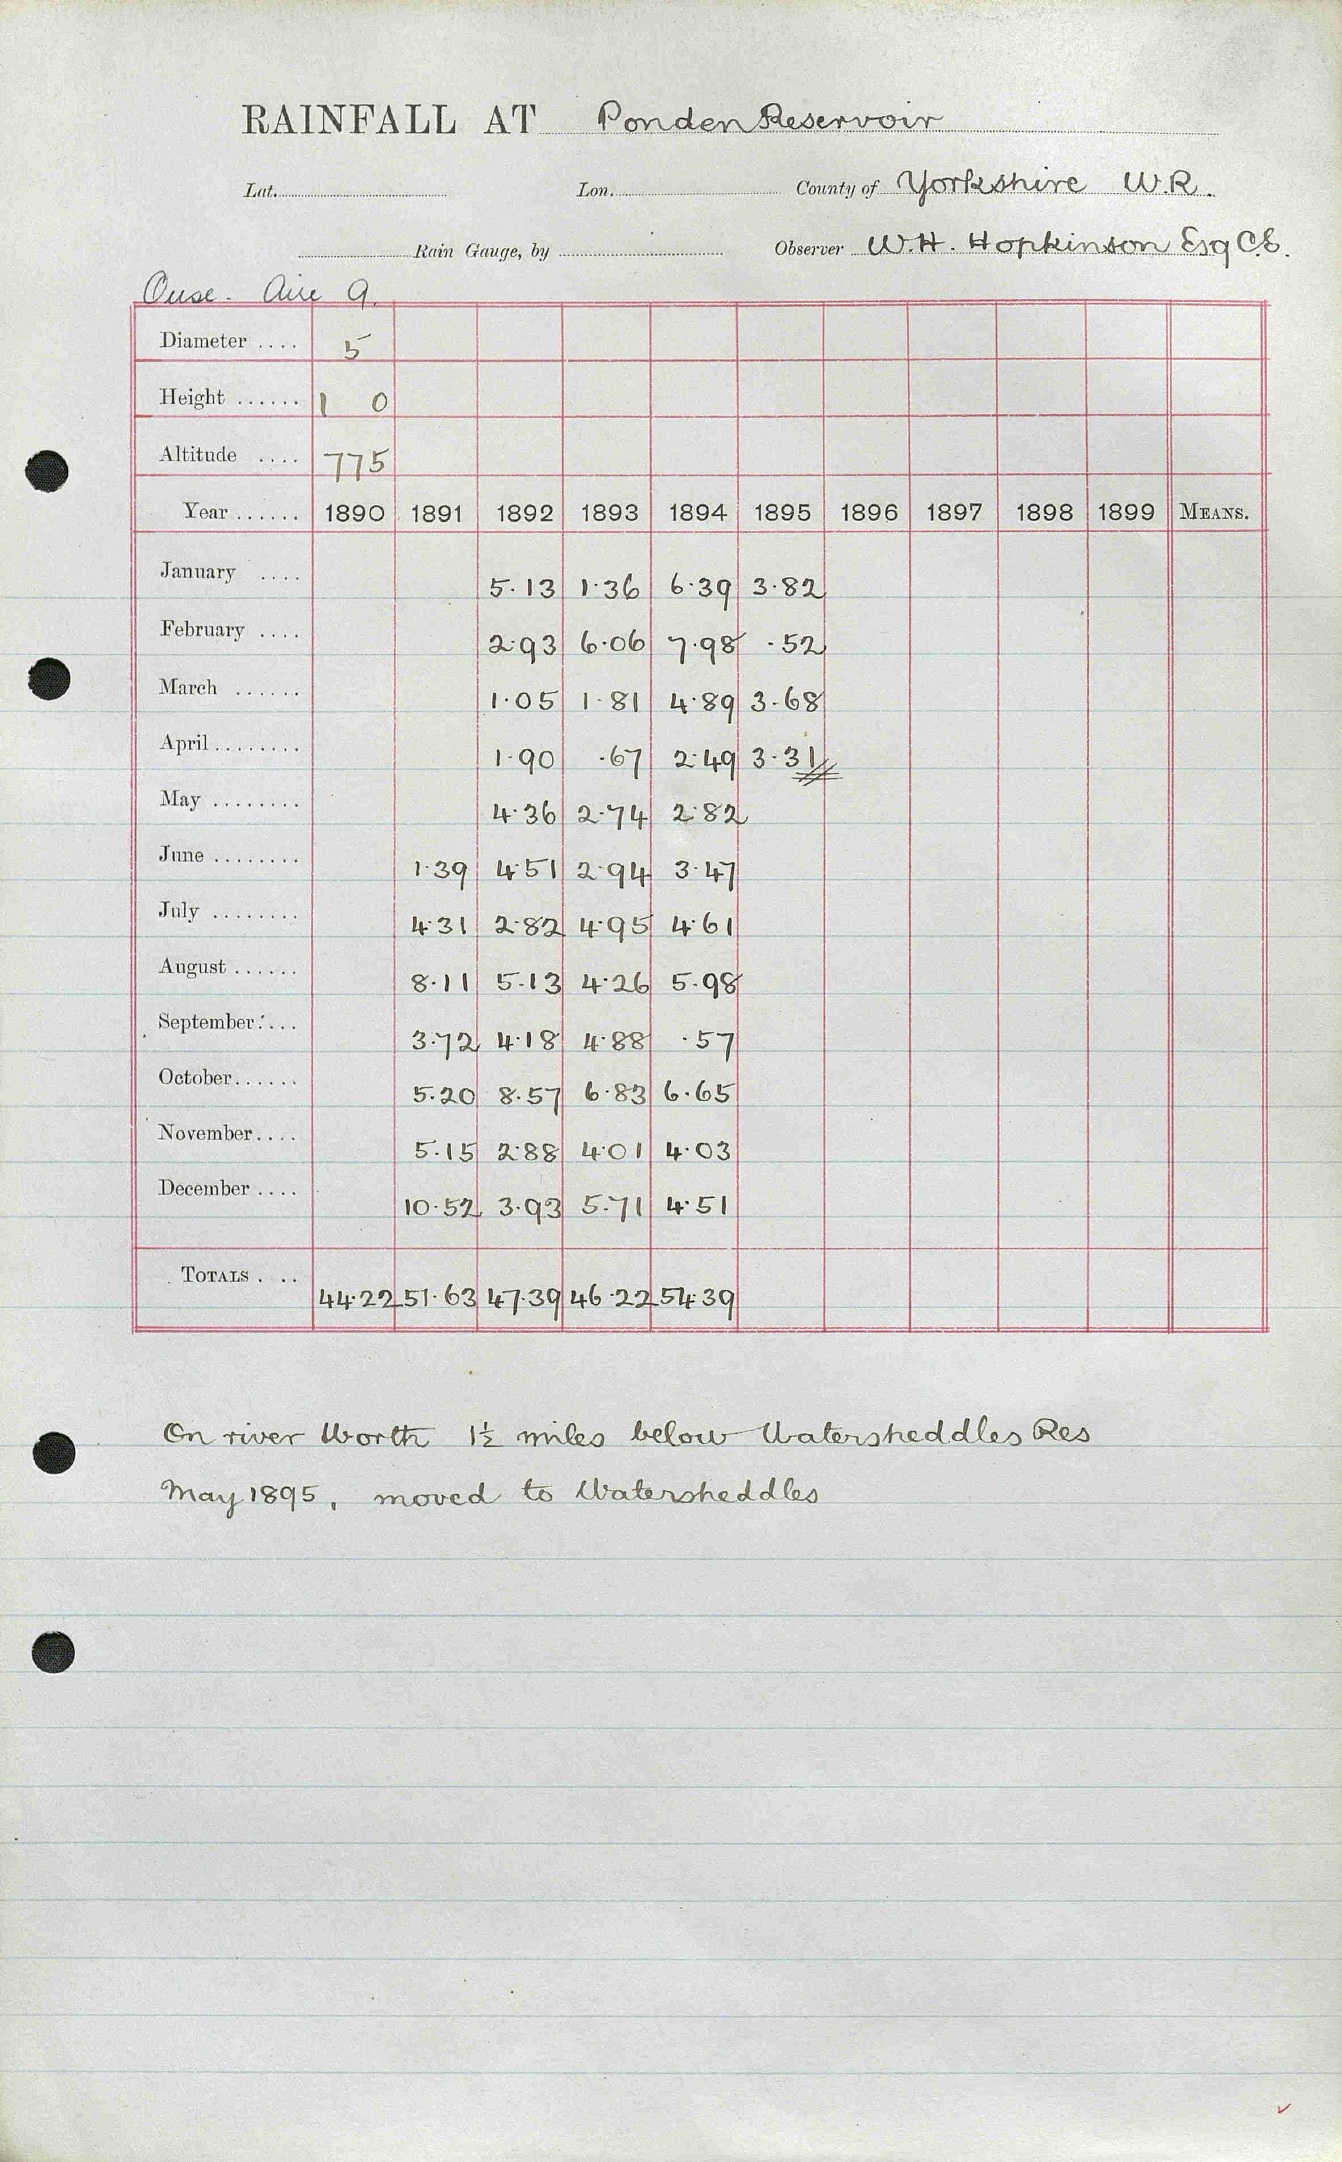 RAINFALL AT Ponden Reservoir
Lat. Lon. County of Yorkshire W.R.
Rain Gauge, by Observer W.H. Hopkinson Esq C.E.
Ouse. Aire 9.
Diameter .... 5
Height ...... 1 0
Altitude .... 775
Year ...... 1890 1891 1892 1893 1894 1895 1896 1897 1898 1899 MEANS.
January .... 5.13 1.36 6.39 3.82
February .... 2.93 6.06 7.98 .52
March ...... 1.05 1.81 4.89 3.68
April ........ 1.90 .67 2.49 3.31
May ........ 4.36 2.74 2.82
June ........ 1.39 4.51 2.94 3.47
July ........ 4.31 2.82 4.95 4.61
August ...... 8.11 5.13 4.26 5.98
September .... 3.72 4.18 4.88 .57
October ...... 5.20 8.57 6.83 6.65
November .... 5.15 2.88 4.01 4.03
December .... 10.52 3.93 5.71 4.51
TOTALS . .. 44.22 51.63 47.39 46.22 54.39
On river Worth 1½ miles below Watersheddles Res
May 1895, moved to Watersheddles